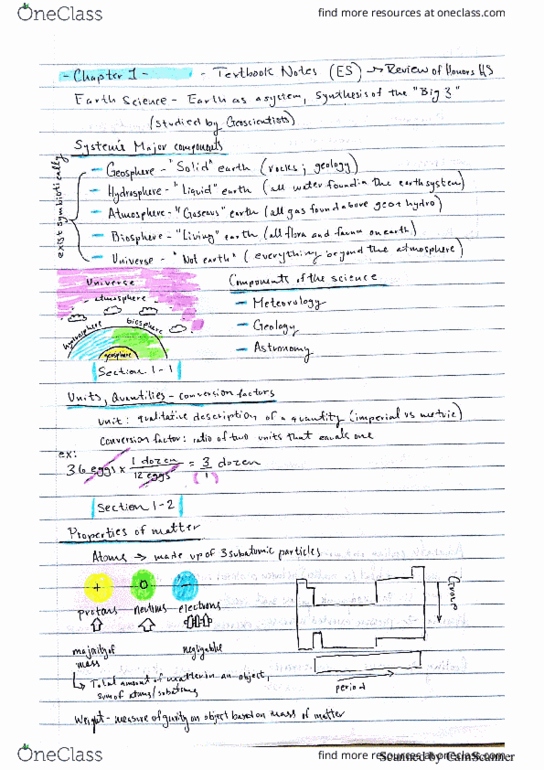 OneClass
find more resources at oneclass.com
- Chapter 1 - - Textbook Notes (ES) → Review of Honors HS
Earth Science - Earth as a system, synthesis of the "Big 3"
(studied by Geoscientists)
System's Major components
exist symbiotically
- Geosphere - "Solid" earth (rocks; geology)
- Hydrosphere - "Liquid" earth (all water found in the earth system)
- Atmosphere - "Gaseous" earth (all gas found above geo + hydro)
- Biosphere - "Living" earth (all flora and fauna on earth)
- Universe - "Not earth" (everything beyond the atmosphere)
Universe
atmosphere
hydrosphere
biosphere
geosphere
Components of the science
- Meteorology
- Geology
- Astronomy
Section 1-1
Units, Quantities - conversion factors
unit: qualitative description of a quantity (imperial vs metric)
Conversion factor: ratio of two units that equals one
ex:
36 eggs x 1 dozen / 12 eggs = 3 / (1) dozen
Section 1-2
Properties of matter
Atoms → made up of 3 subatomic particles
+ 0 -
protons neutrons electrons
majority of mass
negligable
Group
period
Total amount of matter in an object,
sum of atoms/subatoms
Weight - measure of gravity on object based on mass of matter
OneClass
find more resources at oneclass.com
Scanned by CamScanner